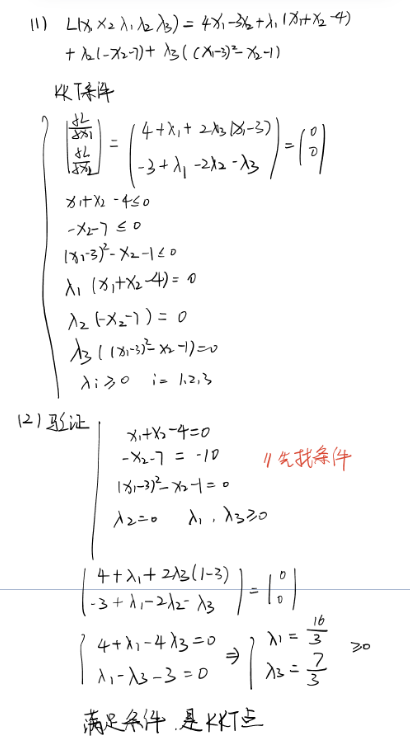 (1) L(x₁ x₂ λ₁ λ₂ λ₃) = 4x₁-3x₂+λ₁(x₁+x₂-4)
+ λ₂(-x₂-7)+ λ₃((x₁-3)²-x₂-1)
KKT条件
(∂L/∂x₁, ∂L/∂x₂) = (4+λ₁+2λ₃(x₁-3), -3+λ₁-2λ₂-λ₃) = (0, 0)
x₁+x₂-4≤0
-x₂-7≤0
(x₁-3)²-x₂-1≤0
λ₁(x₁+x₂-4)=0
λ₂(-x₂-7)=0
λ₃((x₁-3)²-x₂-1)=0
λi≥0 i=1,2,3
(2)验证
x₁+x₂-4=0
-x₂-7=-10
(x₁-3)²-x₂-1=0
//先找条件
λ₂=0 λ₁,λ₃≥0
(4+λ₁+2λ₃(1-3), -3+λ₁-2λ₂-λ₃) = (0, 0)
{4+λ₁-4λ₃=0, λ₁-λ₃-3=0 ⇒ {λ₁=16/3, λ₃=7/3 ≥0
满足条件.是KKT点